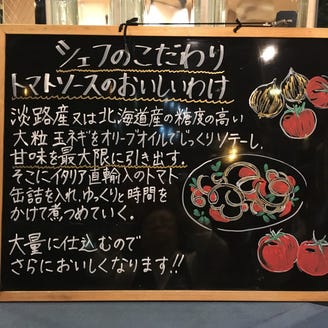 シェフのこだわり
トマトソースのおいしいわけ
淡路産又は北海道産の糖度の高い
大粒玉ネギをオリーブオイルでじっくりソテーし、
甘味を最大限に引き出す。
そこにイタリア直輸入のトマト
缶詰を入れ、ゆっくりと時間を
かけて煮つめていく。
大量に仕込むので
さらにおいしくなります!!